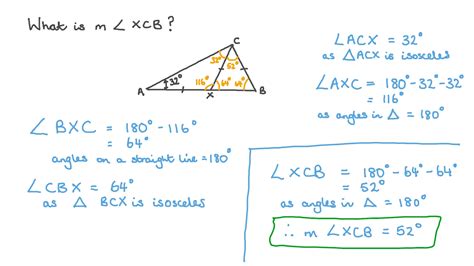 What is m ∠ XCB?
C
32°
52°
32°
116°
64°
64°
A
X
B
∠ACX = 32°
as △ACX is isosceles
∠AXC = 180°-32°-32°
= 116°
as angles in △ = 180°
∠BXC = 180°-116°
= 64°
angles on a straight line = 180°
∠CBX = 64°
as △ BCX is isosceles
∠XCB = 180°-64°-64°
= 52°
as angles in △ = 180°
∴ m ∠XCB = 52°